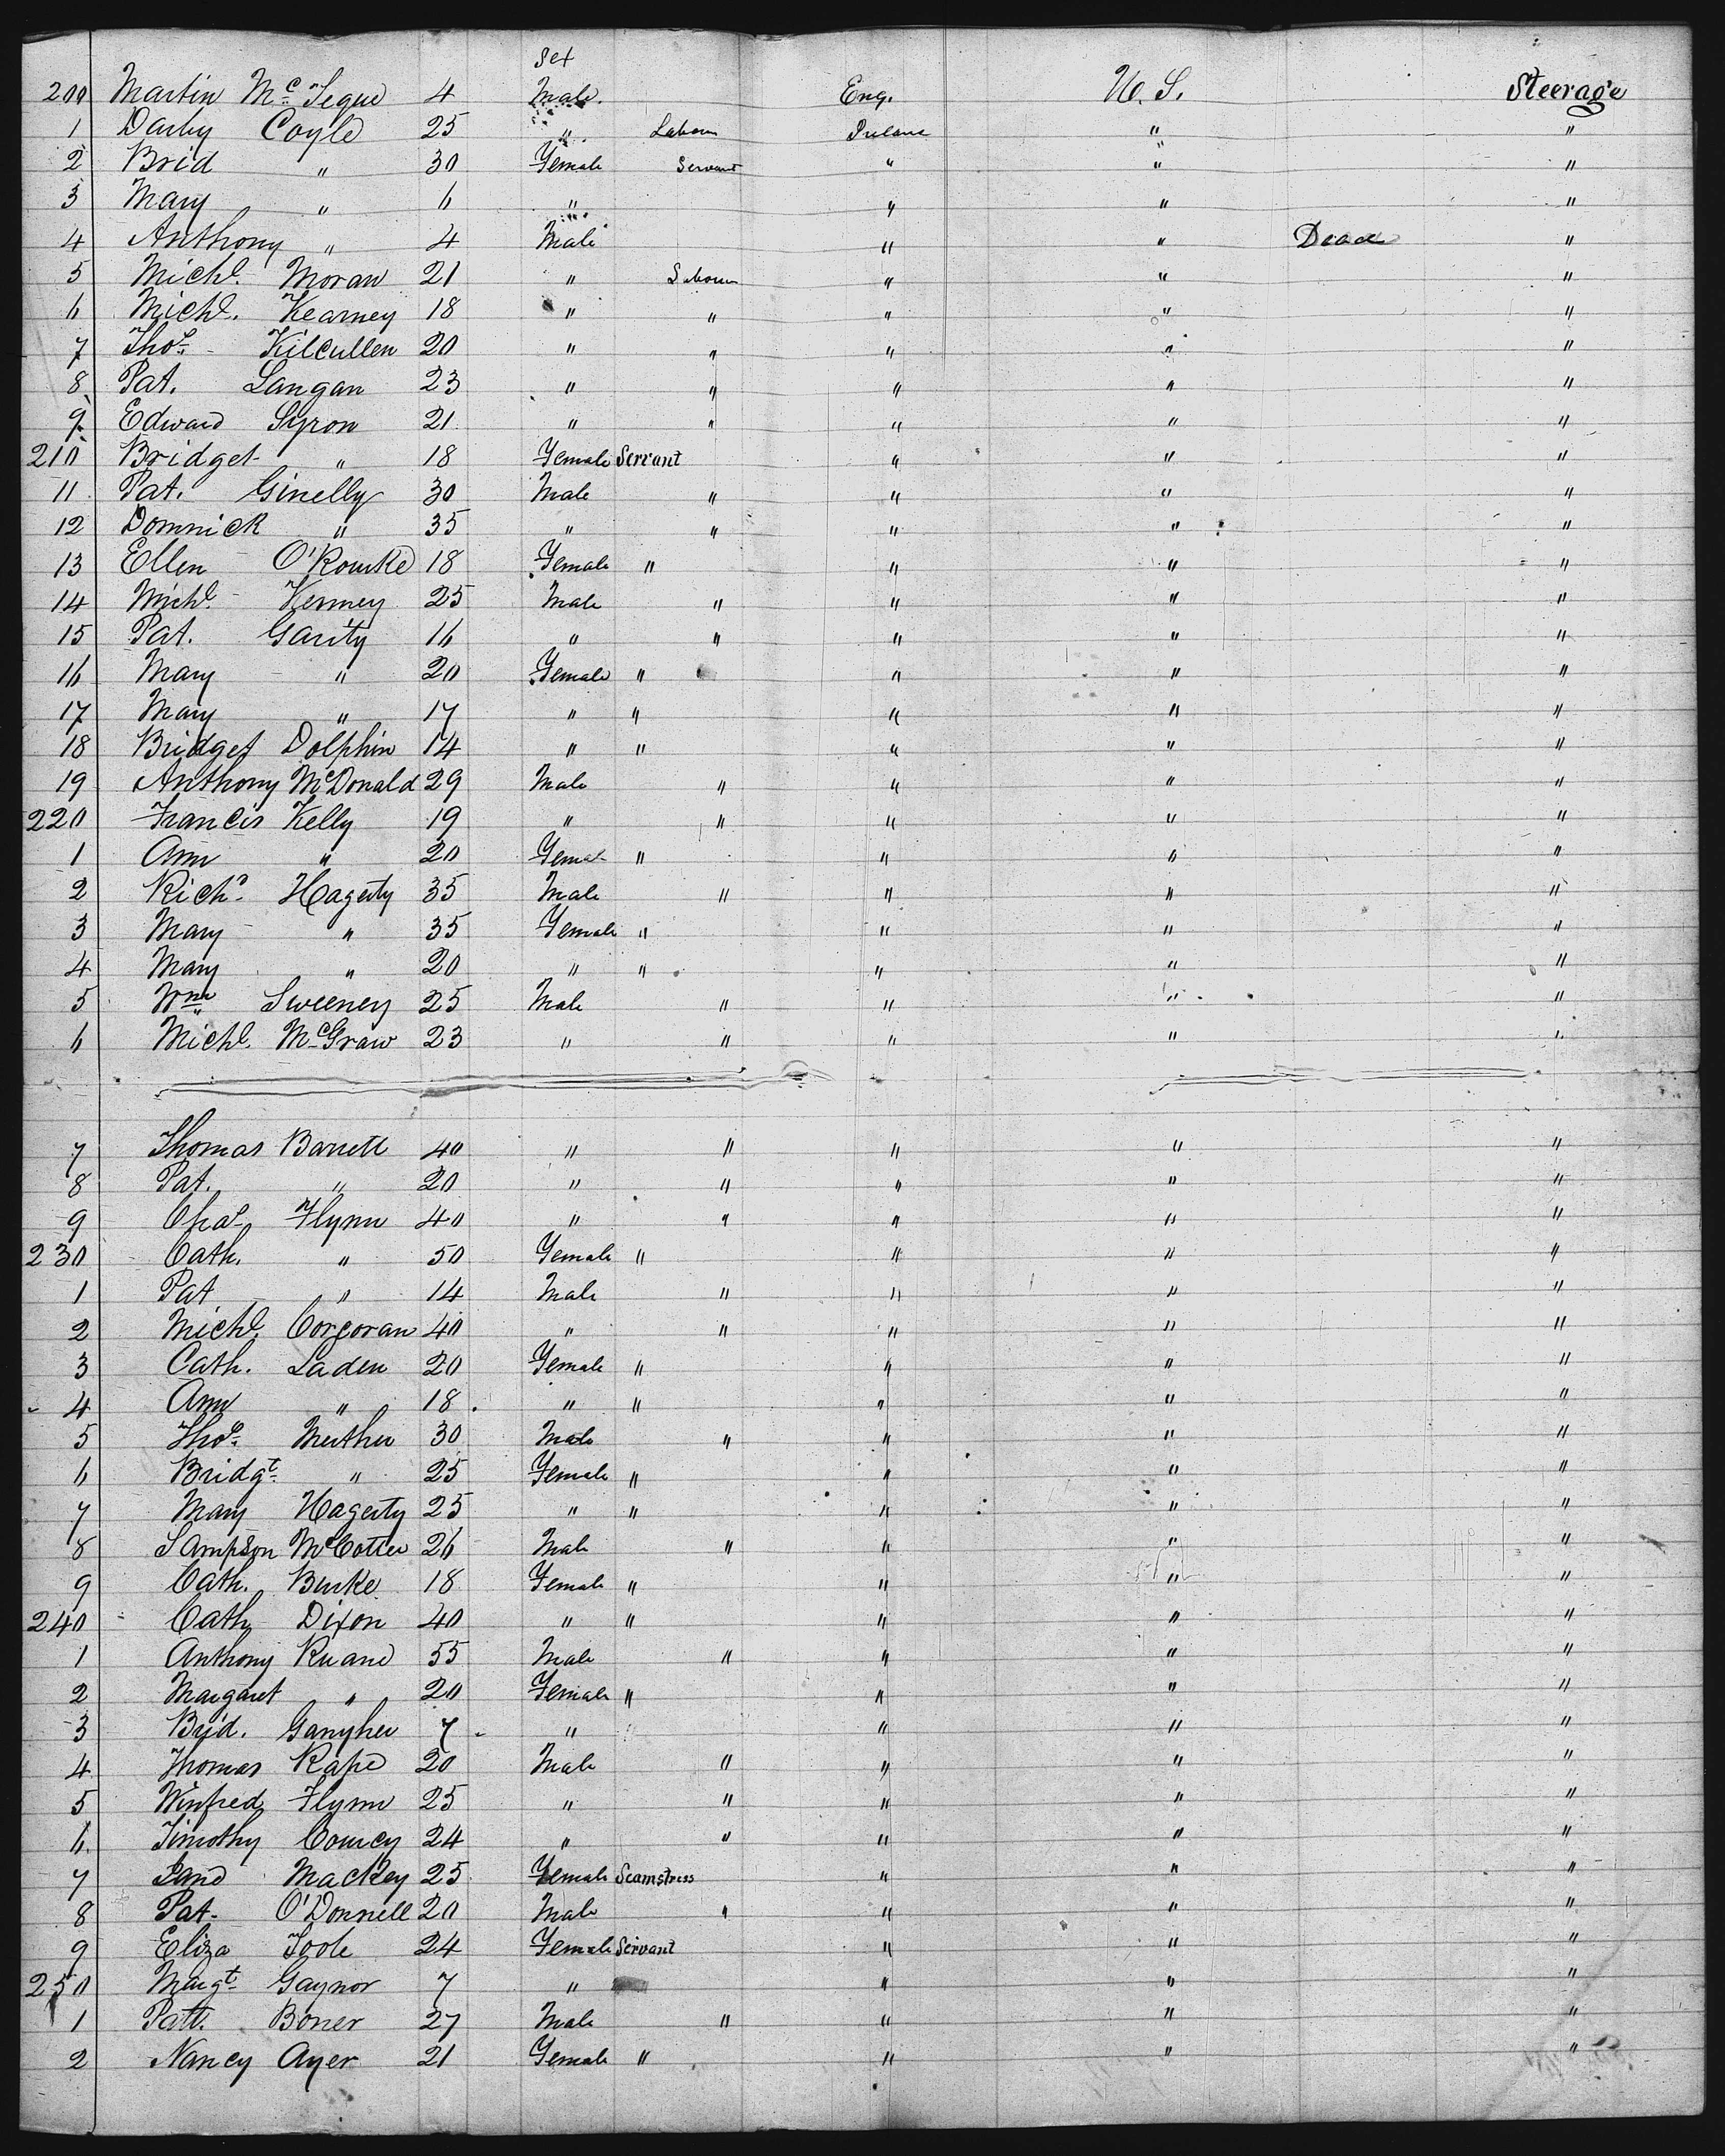 Sex
200 Martin Mc Tegue 4 Male. Eng. U. S. Steerage
1 Darby Coyle 25 " Labour Ireland " "
2 Brid " 30 Female Servant " " "
3 Mary " 6 " " " "
4 Anthony " 4 Male " " Dead "
5 Michl. Moran 21 " Labour " " "
6 Michl. Kearney 18 " " " " "
7 Thos. Kilcullen 20 " " " " "
8 Pat. Langan 23 " " " " "
9 Edward Syron 21 " " " " "
210 Bridget " 18 Female Servant " " "
11 Pat. Ginelly 30 Male " " " "
12 Domnick " 35 " " " " "
13 Ellen O'Rourke 18 Female " " " "
14 Michl. Kenney 25 Male " " " "
15 Pat. Garity 16 " " " " "
16 Mary " 20 Female " " " "
17 Mary " 17 " " " " "
18 Bridget Dolphin 14 " " " " "
19 Anthony McDonald 29 Male " " " "
220 Francis Kelly 19 " " " " "
1 Ann " 20 Femal " " " "
2 Richd. Hagerty 35 Male " " " "
3 Mary " 35 Female " " " "
4 Mary " 20 " " " " "
5 Wm Sweeney 25 Male " " " "
6 Michl. McGraw 23 " " " " "
7 Thomas Barrett 40 " " " " "
8 Pat. " 20 " " " " "
9 Chas Flynn 40 " " " " "
230 Cath. " 50 Female " " " "
1 Pat " 14 Male " " " "
2 Michl. Corcoran 40 " " " " "
3 Cath. Laden 20 Female " " " "
4 Ann " 18 " " " " "
5 Thos. 30 Male " " " "
6 Bridgt. " 25 Female " " " "
7 Mary Hagerty 25 " " " " "
8 Sampson McCotter 26 Male " " " "
9 Cath. Burke 18 Female " " " "
240 Cath Dixon 40 " " " " "
1 Anthony Ruane 55 Male " " " "
2 Margaret " 20 Female " " " "
3 Brid. 7 " " " "
4 Thomas Rape 20 Male " " " "
5 Winfred Flynn 25 " " " " "
6. Timothy 24 " " " " "
7 Jane Mackey 25 Female Seamstress " " "
8 Pat. O'Donnell 20 Male " " " "
9 Eliza Toole 24 Female Servant " " "
250 Margt. Gaynor 7 " " " "
1 Patt. Boner 27 Male " " " "
2 Nancy Ayer 21 Female " " " "